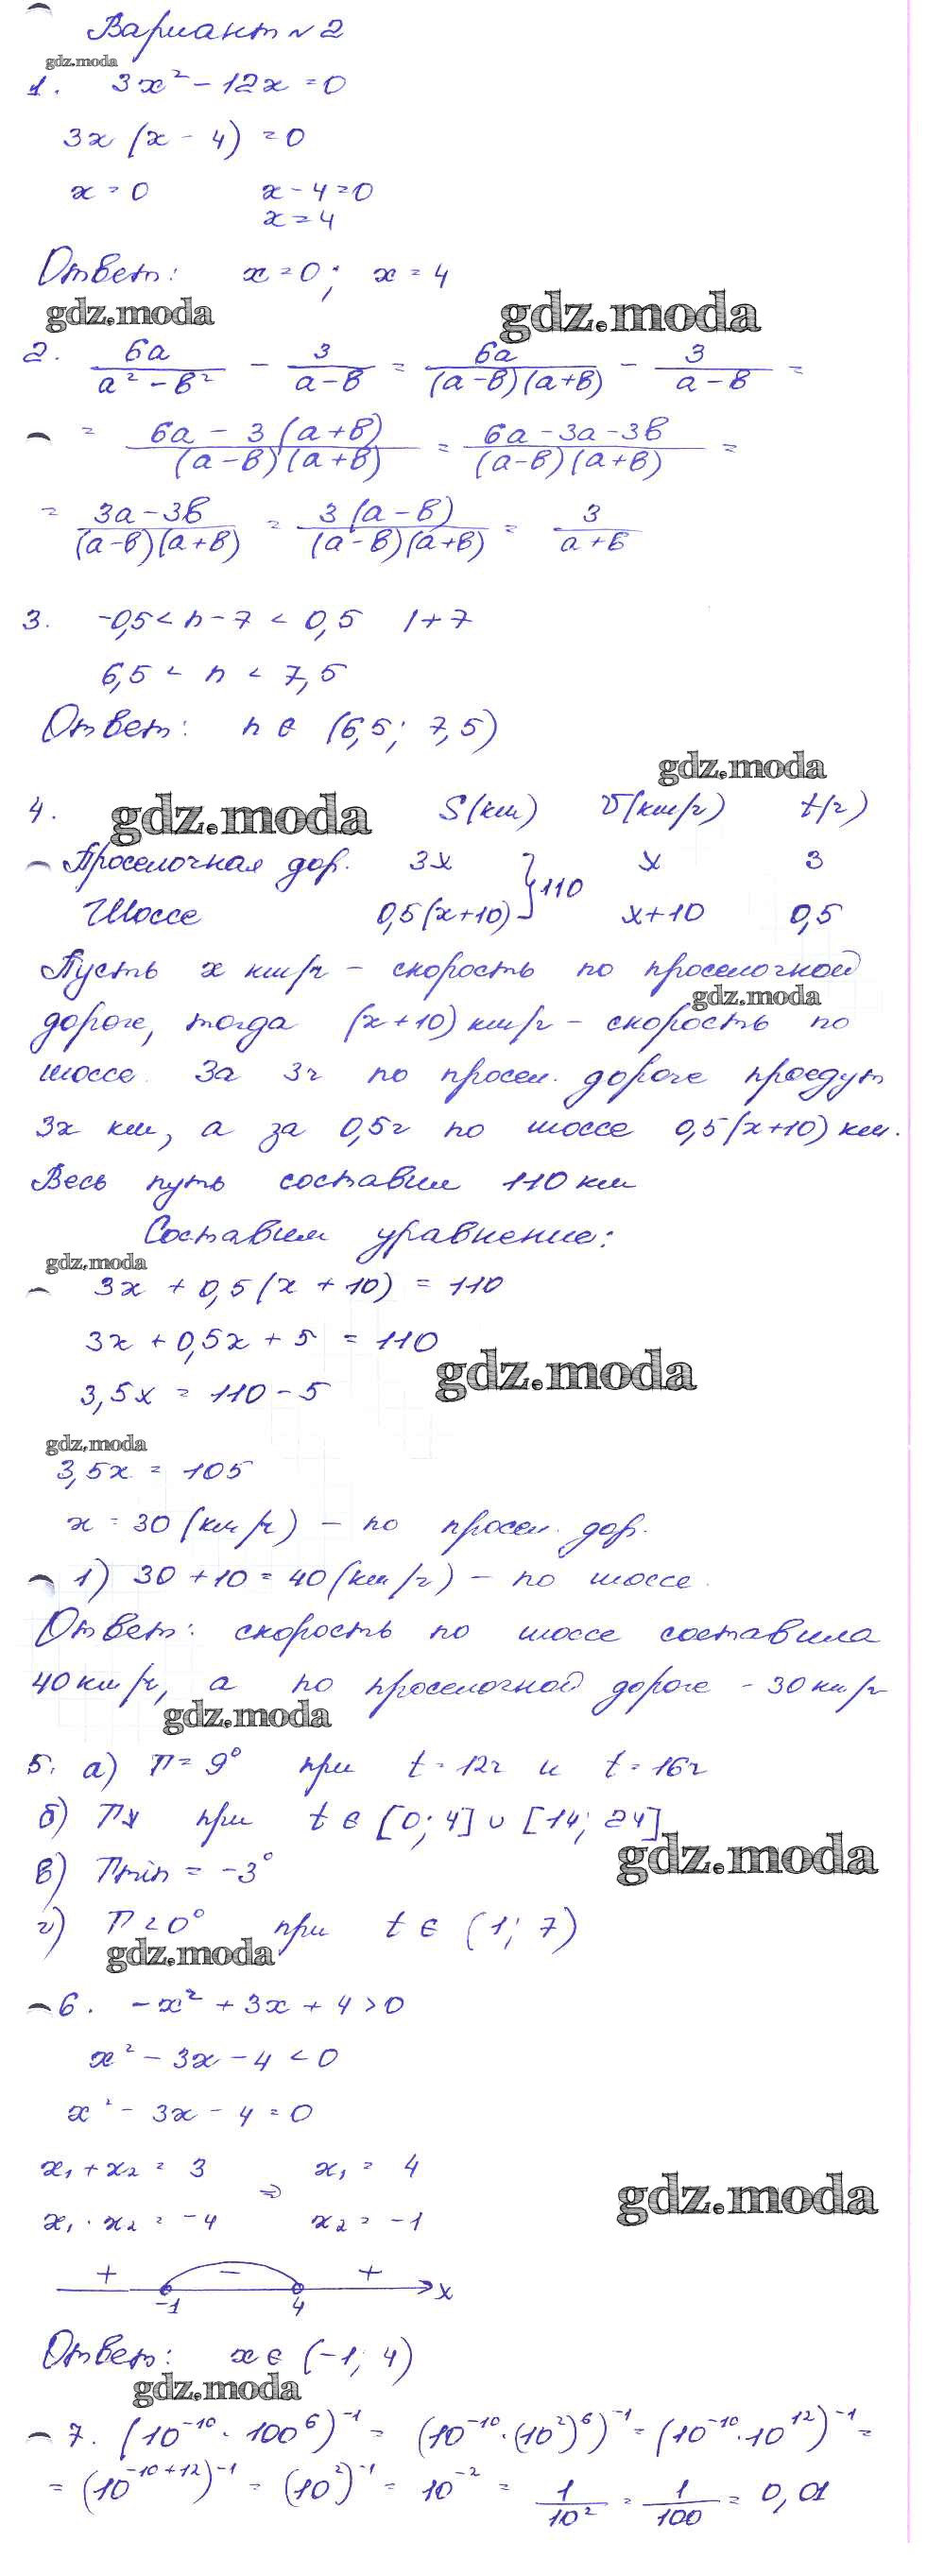 Вариант №2
gdz.moda
1. 3x² - 12x = 0
3x (x - 4) = 0
x = 0 x - 4 = 0
x = 4
Ответ: x = 0; x = 4
gdz.moda gdz.moda
2. 6a/(a² - в²) - 3/(a - в) = 6a/((a-в)(a+в)) - 3/(a-в) =
= (6a - 3(a+в))/((a-в)(a+в)) = (6a - 3a - 3в)/((a-в)(a+в)) =
= (3a - 3в)/((a-в)(a+в)) = 3(a-в)/((a-в)(a+в)) = 3/(a+в)
3. -0,5 < n - 7 < 0,5 |+7
6,5 < n < 7,5
Ответ: n ∈ (6,5; 7,5)
gdz.moda
4. gdz.moda S(км) V(км/ч) t(ч)
Проселочная дор. 3x } 110 x 3
Шоссе 0,5(x+10) x+10 0,5
Пусть x км/ч - скорость по проселочной
gdz.moda
дороге, тогда (x+10) км/ч - скорость по
шоссе. За 3ч по просел. дороге проедут
3x км, а за 0,5ч по шоссе 0,5(x+10) км.
Весь путь составил 110 км
Составим уравнение:
gdz.moda
3x + 0,5(x + 10) = 110
3x + 0,5x + 5 = 110
gdz.moda
3,5x = 110 - 5
gdz.moda
3,5x = 105
x = 30 (км/ч) - по просел. дор.
1) 30 + 10 = 40 (км/ч) - по шоссе.
Ответ: скорость по шоссе составила
40 км/ч, а по проселочной дороге - 30 км/ч
gdz.moda
5. а) П = 9° при t = 12ч и t = 16ч
б) П↓ при t ∈ [0; 4] ∪ [14; 24]
gdz.moda
в) Пmin = -3°
г) П < 0° при t ∈ (1; 7)
gdz.moda
6. -x² + 3x + 4 > 0
x² - 3x - 4 < 0
x² - 3x - 4 = 0
x₁ + x₂ = 3 ⇒ x₁ = 4
x₁ · x₂ = -4 x₂ = -1
gdz.moda
+ - + x
-1 4
Ответ: x ∈ (-1; 4)
gdz.moda
7. (10⁻¹⁰ · 100⁶)⁻¹ = (10⁻¹⁰ · (10²)⁶)⁻¹ = (10⁻¹⁰ · 10¹²)⁻¹ =
= (10⁻¹⁰⁺¹²)⁻¹ = (10²)⁻¹ = 10⁻² = 1/10² = 1/100 = 0,01